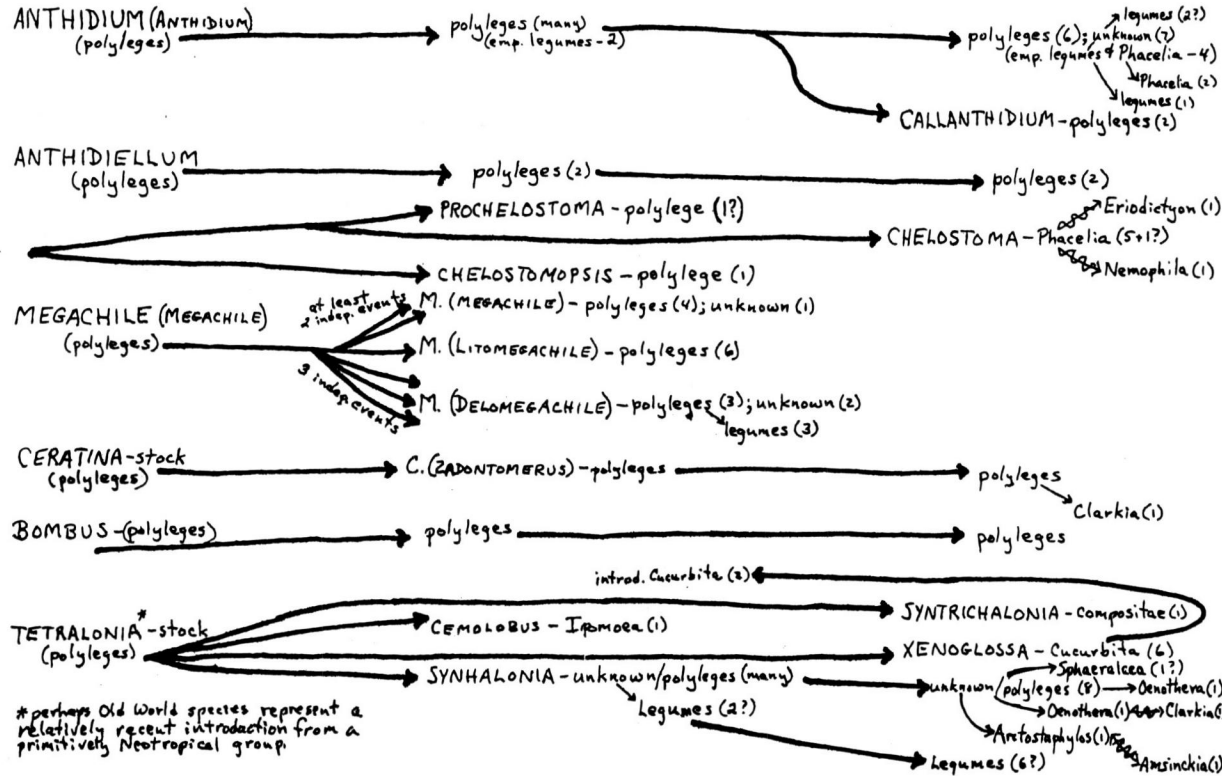 ANTHIDIUM (ANTHIDIUM)
(polyleges)
polyleges (many)
(emp. legumes-2)
legumes (2?)
polyleges (6); unknown (7)
(emp. legumes & Phacelia-4)
Phacelia (2)
legumes (1)
CALLANTHIDIUM-polyleges (2)
ANTHIDIELLUM
(polyleges)
polyleges (2)
polyleges (2)
PROCHELOSTOMA-polylege (1?)
Eriodictyon (1)
CHELOSTOMA-Phacelia (5+1?)
Nemophila (1)
CHELOSTOMOPSIS-polylege (1)
MEGACHILE (MEGACHILE)
(polyleges)
at least
2 indep. events
M. (MEGACHILE)-polyleges (4); unknown (1)
M. (LITOMEGACHILE)-polyleges (6)
3 indep. events
M. (DELOMEGACHILE)-polyleges (3); unknown (2)
legumes (3)
CERATINA-stock
(polyleges)
C. (ZADONTOMERUS)-polyleges
polyleges
Clarkia (1)
BOMBUS-(polyleges)
polyleges
polyleges
introd. Cucurbita (2)
TETRALONIA*-stock
(polyleges)
CEMOLOBUS-Ipomoea (1)
SYNTRICHALONIA-Compositae (1)
XENOGLOSSA-Cucurbita (6)
SYNHALONIA-unknown/polyleges (many)
Legumes (2?)
Sphaeralcea (1?)
unknown/polyleges (8)
Oenothera (1)
Oenothera (1)
Clarkia (1
Arctostaphylos (1)
Amsinckia (1)
Legumes (6?)
*perhaps Old World species represent a
relatively recent introduction from a
primitively Neotropical group.